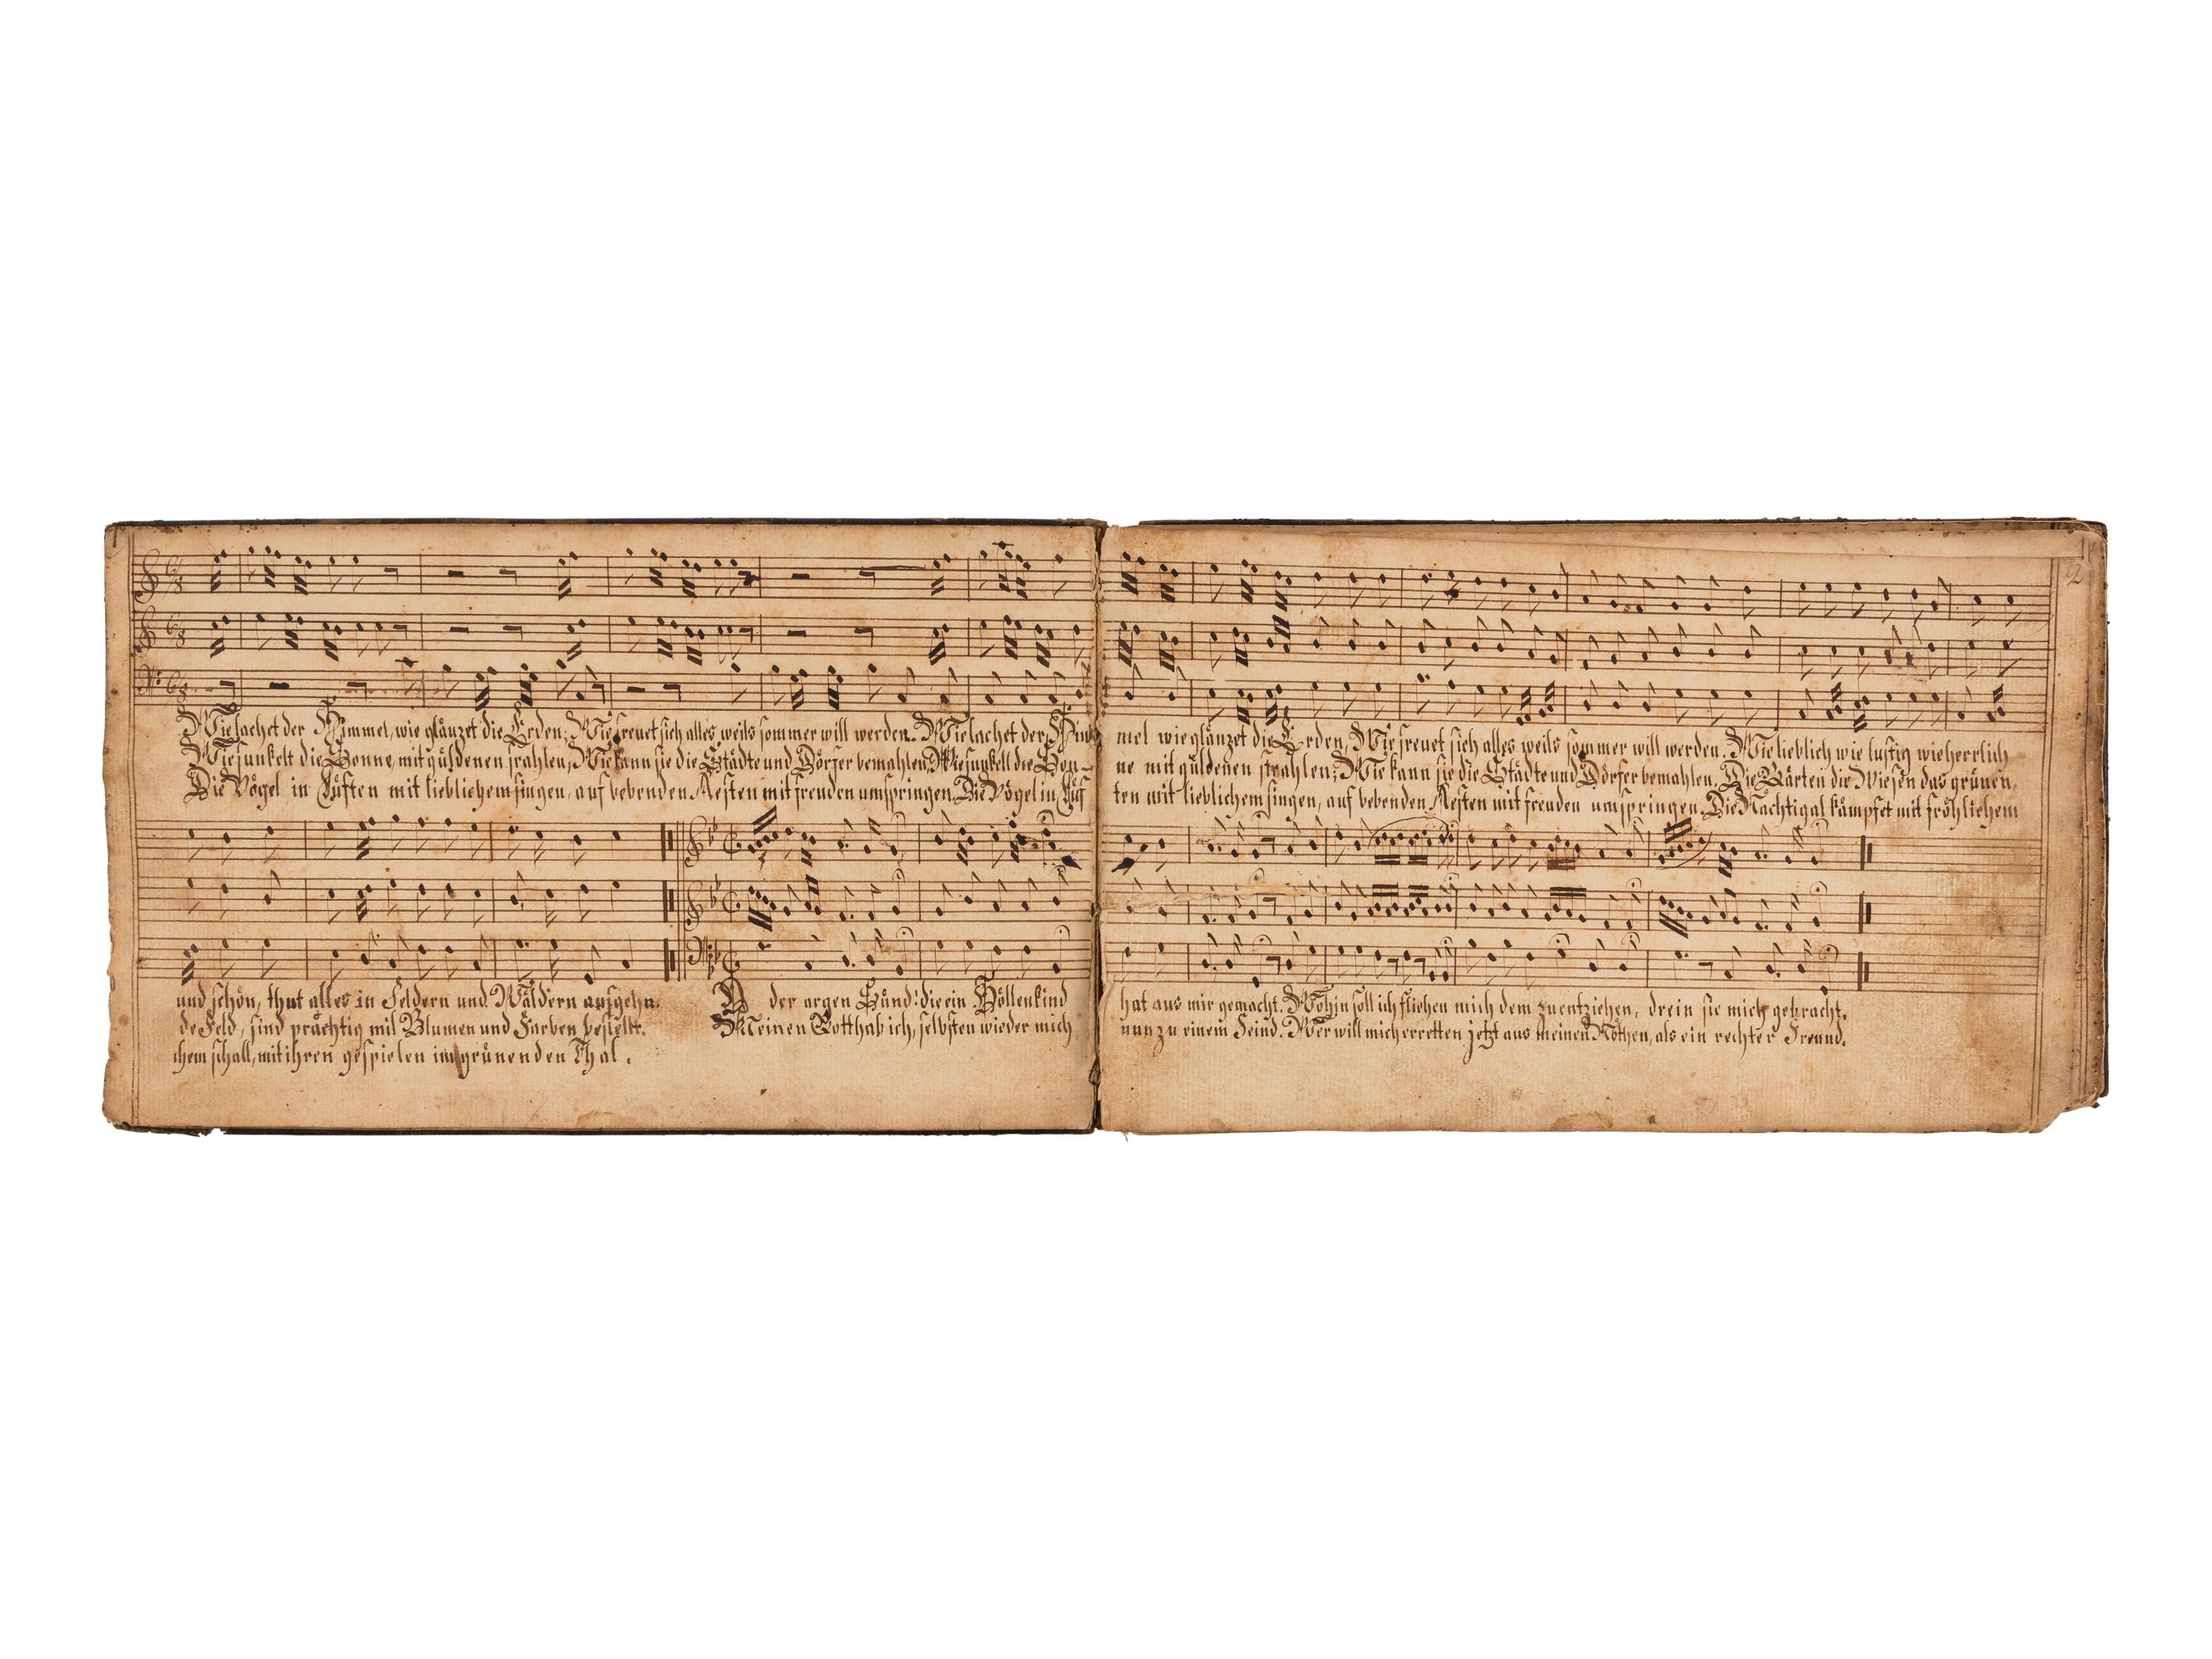 1
2
6/8
6/8
6/8
Wie lachet der Himmel, wie glänzet die Erden, Wie freuet sich alles weils sommer will werden. Wie lachet der Him
Wie funkelt die Sonne, mit güldenen strahlen, Wie kann sie die Städte und Dörfer bemahlen, Wie funkelt die Son-
Die Vögel in Lüften mit lieblichem singen, auf bebenden Aesten mit freuden umspringen. Die Vögel in Lüf
mel wie glänzet die Erden, Wie freuet sich alles weils sommer will werden. Wie lieblich wie lustig wie herrlich
ne mit güldenen strahlen; Wie kann sie die Städte und Dörfer bemahlen. Die Gärten die Wiesen das grünen,
ten mit lieblichem singen, auf bebenden Aesten mit freuden umspringen. Die Nachtigal kämpfet mit fröhlichem
und schön, thut alles in Feldern und Wäldern aufgehn.
de Feld, sind prächtig mit Blumen und Farben bestellt.
chem schall, mit ihren gespielen im grünenden Thal.
O der argen Sünd! die ein Höllenkind
Meinen Gott hab ich, selbsten wieder mich
hat aus mir gemacht. Wohin soll ich fliehen mich dem zuentziehen, drein sie mich gebracht.
nun zu einem Feind. Wer will mich erretten jetzt aus meinen Nöthen, als ein rechter Freund.